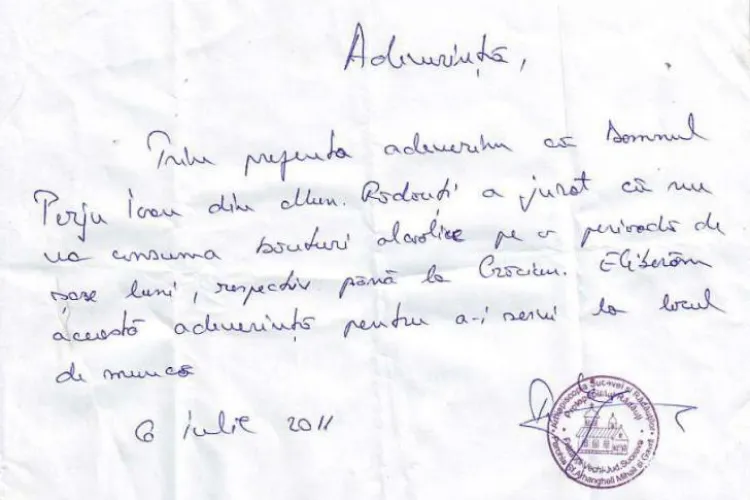 Adeverință,
Prin prezenta adeverim că domnul
Perju Ioan din Mun. Rădăuți a jurat că nu
va consuma băuturi alcolice pe o perioadă de
șase luni, respectiv până la Crăciun. Eliberăm
această adeverință pentru a-i servi la locul
de muncă
6 iulie 2011
Arhiepiscopia Sucevei și Rădăuților
Protopopiatul Rădăuți
Jud. Suceava
Parohia Sf. Arhangheli Mihail și Gavril